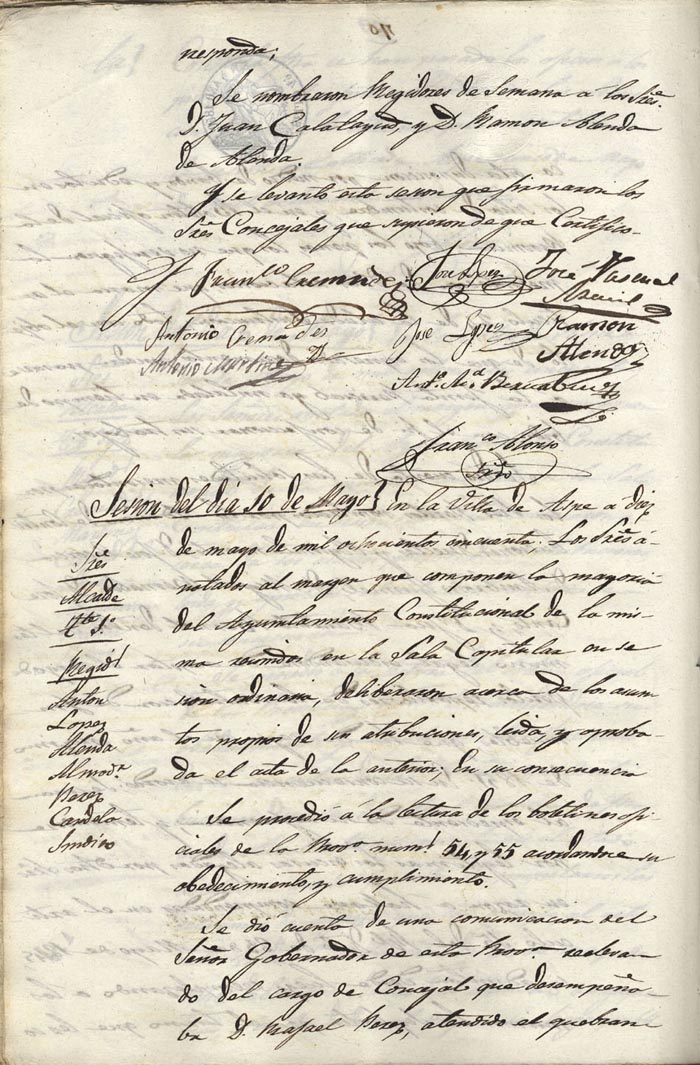 responda;
Se nombraron Regidores de Semana a los Sres
D. Juan Calatayud, y D. Ramon Alenda
de Alenda.
Y se levantó esta sesion que firmaron los
Sres Concejales que supieron de que Certifico.
Franco Cremades José Lopez José Pascual
Antonio Cremades José Lopez Ramon
Antonio Martinez Alenda
Anto Ma
Franco Alonso
Srio
Sesion del dia 10 de Mayo} En la Villa de Aspe a diez
de mayo de mil ochocientos cincuenta; Los Sres a-
notados al margen que componen la mayoria
del Ayuntamiento Constitucional de la mis-
ma reunidos en la Sala Capitular en se
sion ordinaria, deliberaron acerca de los asun
tos propios de sus atribuciones, leida, y aproba-
da el acta de la anterior; En su consecuencia
Sres
Alcalde
Tte 1o
Regids
Anton
Lopez
Alenda
Almoda
Perez
Candela
Sindico
Se procedió á la lectura de los boletines ofi
ciales de la Prova nums 54, y 55 acordandose su
obedecimiento, y cumplimiento.
Se dió cuenta de una comunicacion del
Señor Gobernador de esta Prova relevan
do del cargo de Concejal que desempeña-
ba D. Rafael Perez, atendido el quebran